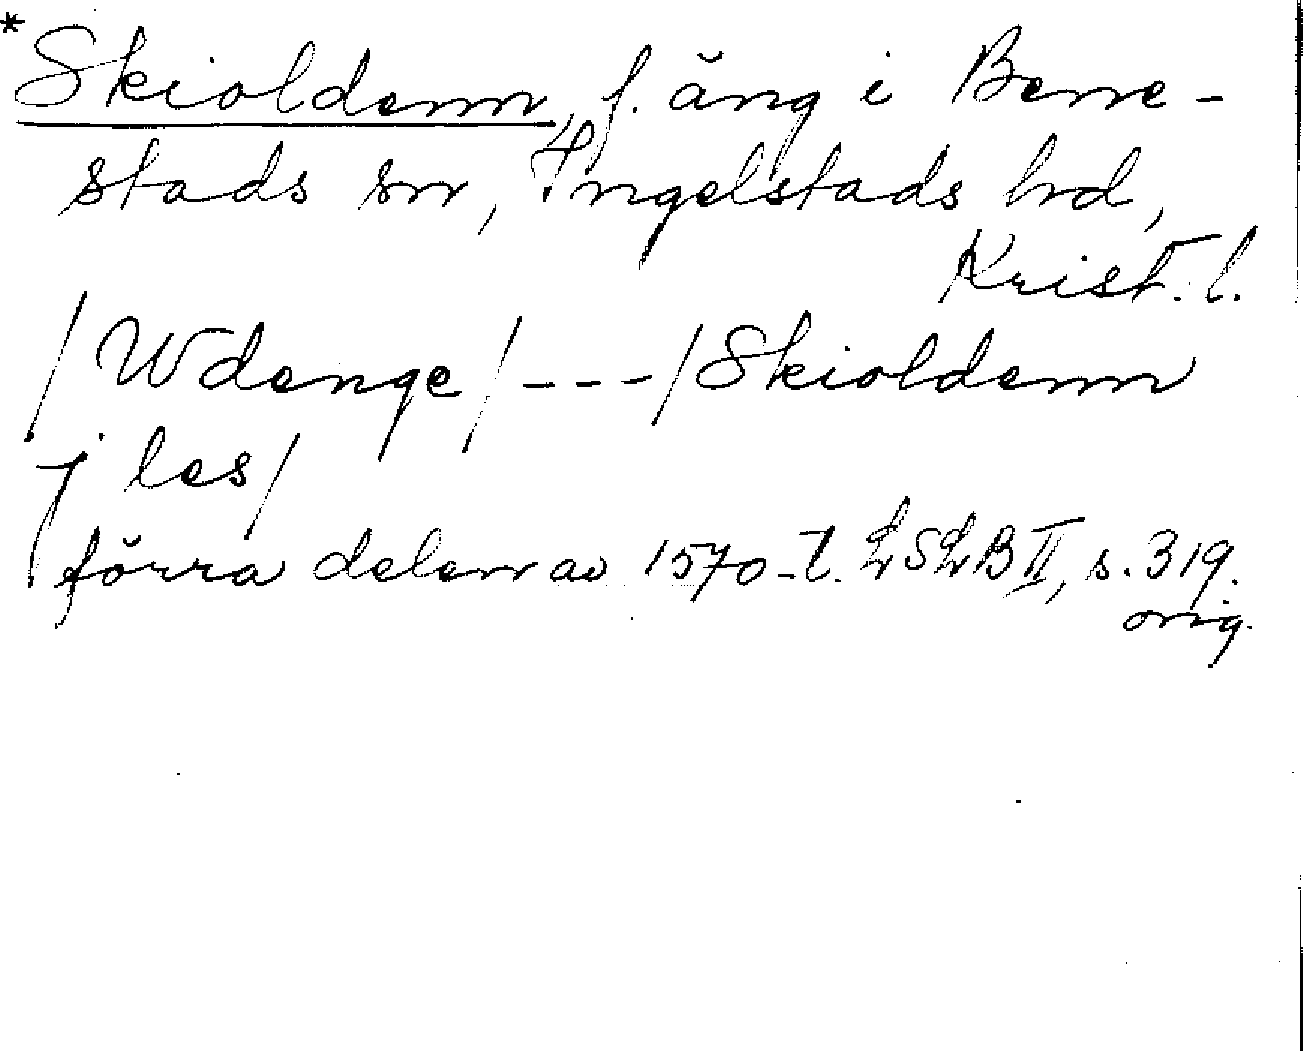 *Skioldenn, f. äng i Bene-
stads sn, Ingelstads hd,
Krist. l.
/Wdenge/---/Skioldenn
j les/
förra delen av 1570-t. LSLB II, s. 319.
orig.